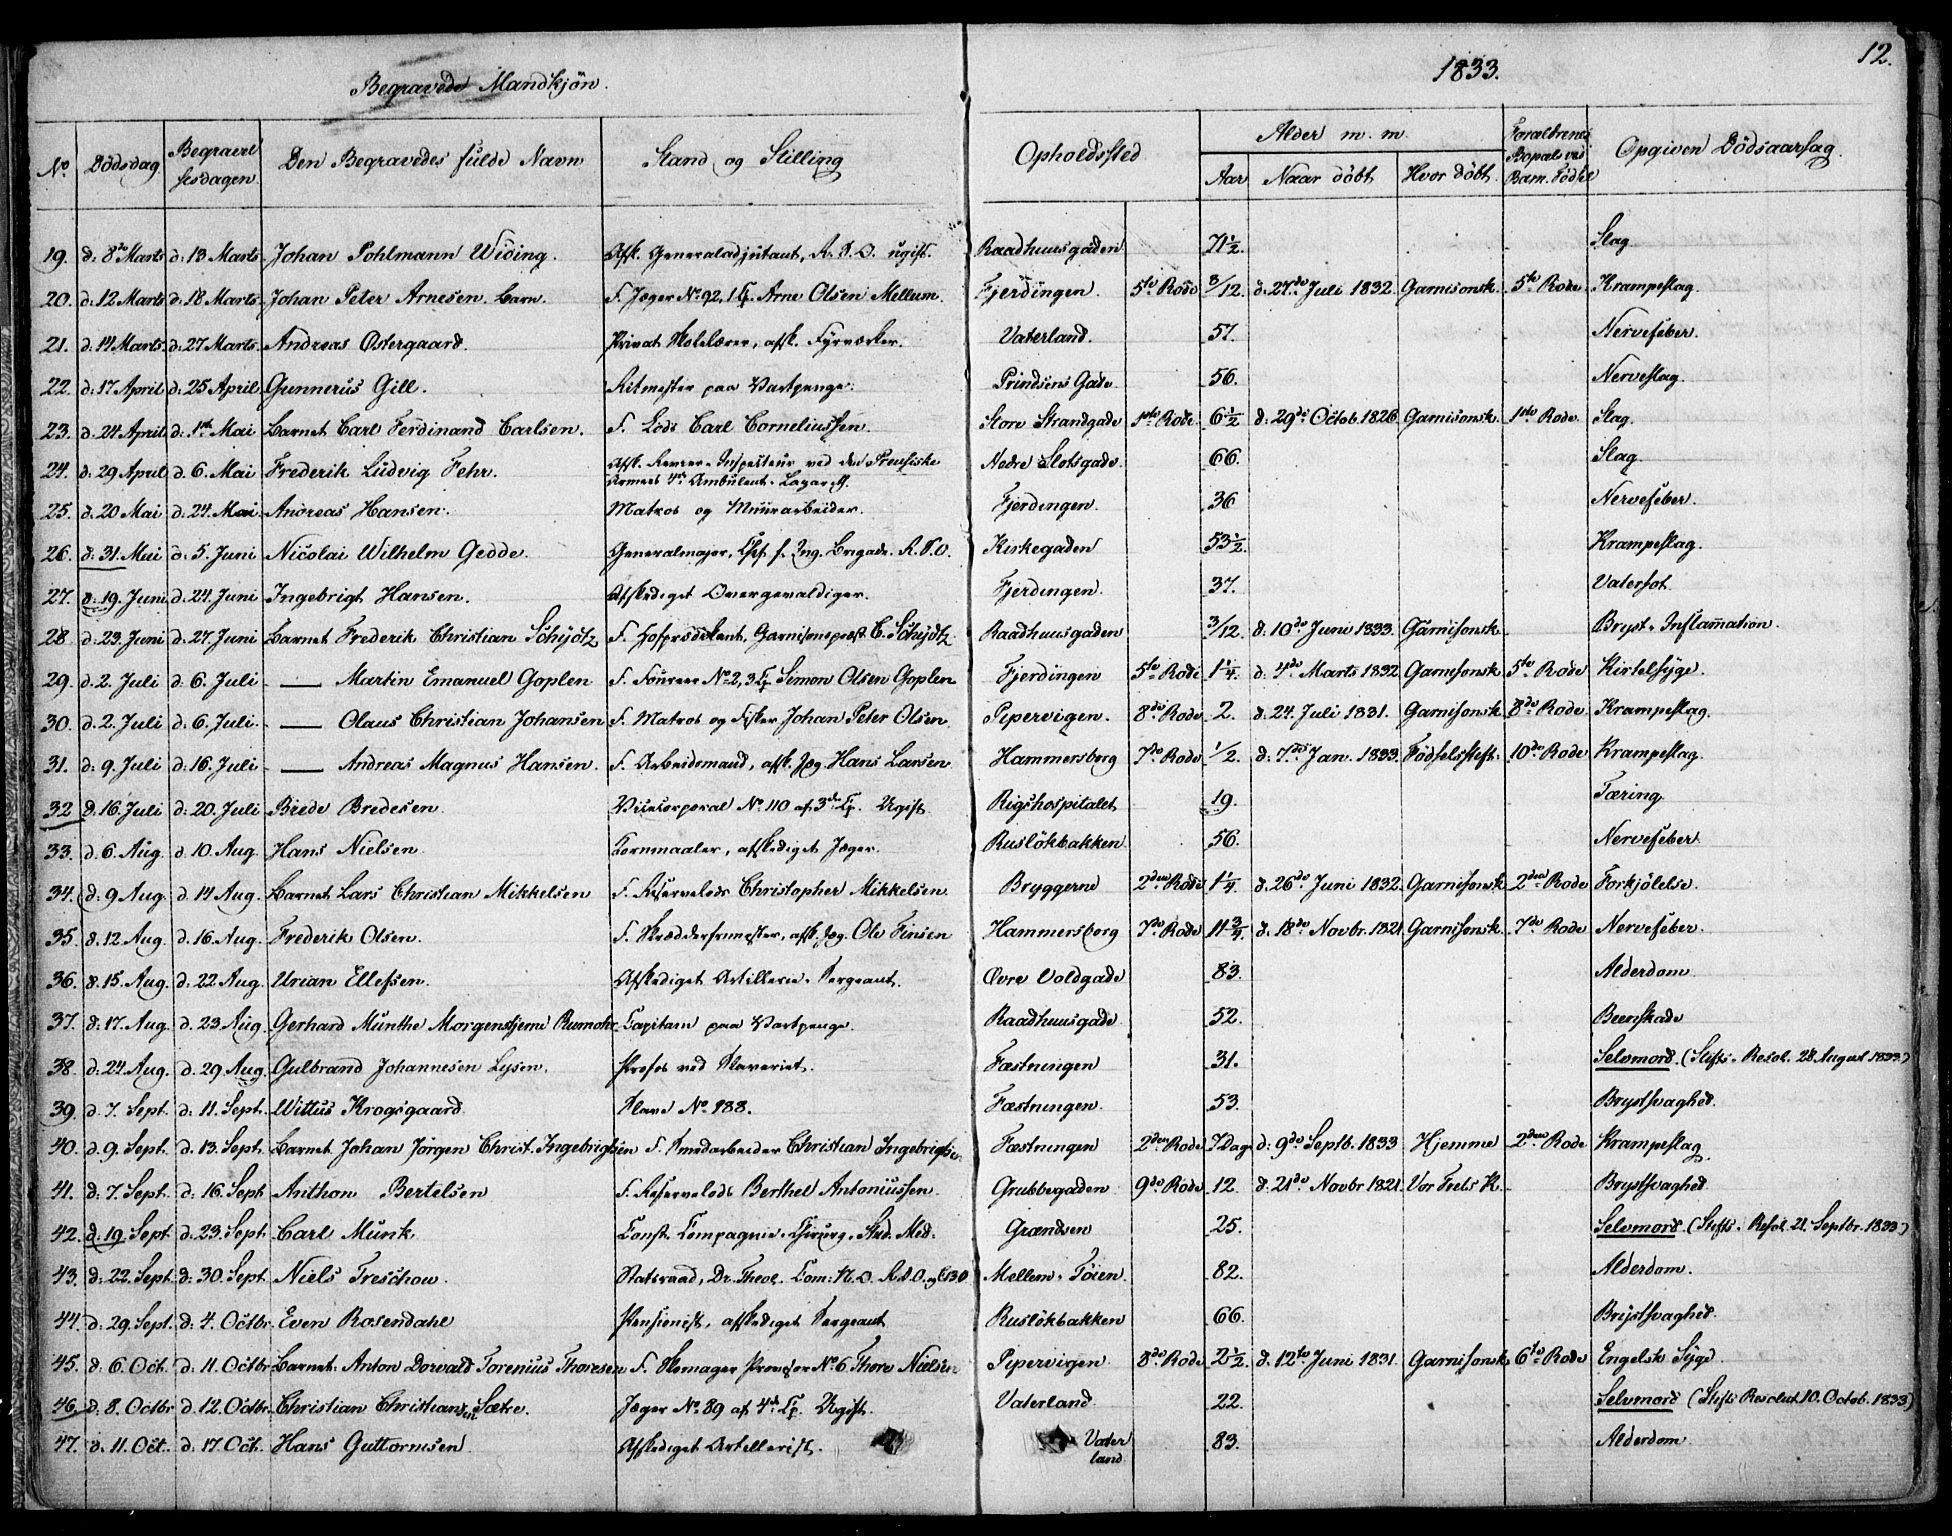 12.
Begravede Mandkjøn.
1833.
No Dödsdag Begravelsesdagen Den Begravedes fulde Navn Stand og Stilling Opholdsted Alder m. m. Aar Naar döbt Hvor döbt Forældrenes Bopæl ved Barn. Födsel Opgiven Dödsaarsag
19. d: 8de Marts d: 13 Marts Johan Pohlmann Widing. Afsk. Generaladjutant, R. S. O. ugift. Raadhuusgaden 71½. Slag
20. d: 12 Marts d: 18 Marts Johan Peter Arnesen. Barn. F. Jæger No 92, 1 Cp. Arne Olsen Mellum. Fjerdingen. 5te Rode 3/12. d: 27de Juli 1832. Garnisonsk. 5te Rode. Krampeslag.
21. d: 14 Marts d: 27 Marts. Andreas Østergaard. Privat Skolelærer, afsk. Fyrværker. Vaterland. 57. Nervefeber.
22. d: 17 April d: 25 April Gunnerus Gill. Ritmester paa Vartpenge. Prindsens Gade 56. Nerveslag.
23. d. 24 April d: 1ste Mai Barnet Carl Ferdinand Carlsen. F. Lods Carl Corneliussen. Store Strandgade 1ste Rode. 6½ d: 29de Octob. 1826 Garnisonsk. 1ste Rode. Slag.
24. d: 29 April d: 6. Mai Frederik Ludvig Fehr. Afsk. Inspecteur ved den Preusiske Armees 4de Ambulent-Lazareth. Nedre Slotsgade. 66. Slag.
25. d. 20 Mai d: 24. Mai Andreas Hansen. Matros og Muurarbeider. Fjerdingen. 36 Nervefeber.
26. d: 31. Mai d: 5. Juni Nicolai Wilhelm Gedde. Generalmajor, Chef f. Ing. Brigade. R. S. O. Kirkegaden 53½. Krampeslag.
27. d: 19. Juni d: 24. Juni Ingebrigt Hansen. Afskediget Overgevaldiger. Fjerdingen. 37. Vatersot.
28. d: 23. Juni d: 27. Juni Barnet Frederik Christian Schjötz F. Hofprædikant, Garnisonspræst C. Schjötz Raadhuusgaden 3/12. d. 10de Juni 1833. Garnisonsk Bryst-Inflamation.
29. d: 2. Juli d: 6. Juli — Martin Emanuel Goplen F. Foureer No 2, 3 Cp. Simon Olsen Goplen Fjerdingen 5te Rode 1¼. d: 4de Marts 1832 Garnisonsk 5te Rode Kirtelsyge.
30. d: 2. Juli d: 6. Juli. — Olaus Christian Johansen F. Matros og Fisker Johan Peter Olsen Pipervigen. 8de Rode 2. d: 24. Juli 1831. Garnisonsk 8de Rode. Krampeslag.
31. d: 9. Juli d: 16. Juli — Andreas Magnus Hansen. F. Arbeidsmand, afsk. Jæg. Hans Larsen Hammersborg 7de Rode ½. d: 7de Jan. 1833. Fødselsstift. 10de Rode Krampeslag.
32 d: 16. Juli d: 20. Juli Brede Bredesen. Vicecorporal No 110 af 3die Cp. Ugift. Rigshospitalet 19. Tæring
33. d. 6. Aug. d. 10. Aug Hans Nielsen. Kornmaaler, afskediget Jæger. Ruslökbakken 56. Nervefeber
34. d: 9 Aug. d. 14 Aug. Barnet Lars Christian Mikkelsen F. Reservelods Christopher Mikkelsen Bryggerne 2den Rode 1¼. d: 26de Juni 1832. Garnisonsk 2den Rode Forkjölelse.
35 d. 12 Aug. d. 16. Aug. Frederik Olsen. F. Skrædderfrimester, afsk. Jæg. Ole Finsen Hammersborg 7de Rode 11¾. d. 18de Novbr. 1821 Garnisonsk. 7de Rode Nervefeber.
36. d. 15. Aug. d. 22 Aug. Urian Ellefsen. Afskediget Artillerie-Sergeant. Øvre Voldgade 83. Alderdom.
37. d: 17. Aug. d. 23 Aug. Gerhard Munthe Morgenstjerne Rumohr. Capitain paa Vartpenge. Raadhuusgade 52. Beenskade
38. d. 24 Aug. d. 29 Aug. Gulbrand Johannesen Lysen. Profos ved Slaveriet. Fæstningen 31. Selvmord. (Stifts-Resol. 28 August 1833.)
39. d. 7. Sept. d: 11. Sept. Wittus Krogsgaard. Slave No 188. Fæstningen. 53. Brystsvaghed.
40. d. 9. Sept. d. 13. Sept. Barnet Johan Jörgen Christ. Ingebrigtsen F. Smedarbeider Christian Ingebrigtsen Fæstningen 2den Rode 7 Dage d: 9de Septb. 1833 Hjemme 2den Rode Krampeslag
41. d. 7. Sept. d. 16. Sept Anthon Bertelsen F. Reservelods Berthel Antoniussen. Grubbegaden 9de Rode 12. d. 21de Novbr. 1821. Vor Frels. K. Brystsvaghed
42. d. 19. Sept. d. 23. Sept. Carl Munk. Const. Compagnie-Chirurg, Stud. Med. Grændsen 25. Selvmord (Stifts-Resol. 21. Septbr. 1833.)
43. d: 22. Sept. d: 30. Sept. Niels Treschow. Statsraad, Dr. Theol. Com: N. O. R. D. O. Mellem-Töien. 82. Alderdom.
44. d: 29. Sept. d: 4. Octbr. Even Rosendahl Pensionist, afskediget Sergeant Ruslökbakken 66. Brystsvaghed.
45. d: 6. Oct. d: 11. Octbr. Barnet Anton Dorvald Torenius Thoresen F. Skomager No 6 Thore Nielsen Pipervigen 8de Rode 2½. d. 12te Juni 1831. Garnisonsk 6te Rode Engelsk Syge
46. d. 8. Octbr d. 12. Octbr. Christian Christiansen Sætre. Jæger No 89 af 4de Cp. Ugift. Vaterland. 22. Selvmord (Stifts Resolut. 10. Octob. 1833)
47. d. 11. Oct. d. 17. Oct. Hans Guttormsen Afskediget Artillerist. Vaterland 83. Alderdom